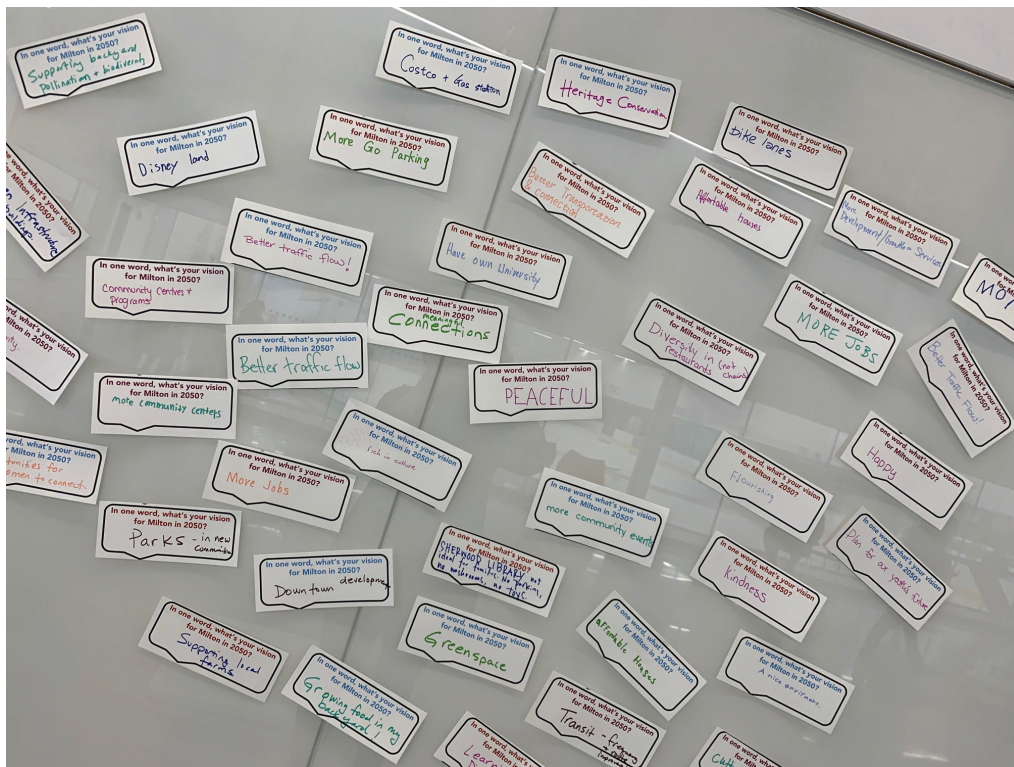 In one word, what's your vision
for Milton in 2050?
Supporting backyard
pollination + biodiversity
In one word, what's your vision
for Milton in 2050?
Costco + Gas station
In one word, what's your vision
for Milton in 2050?
Heritage Conservation
In one word, what's your vision
for Milton in 2050?
bike lanes
In one word, what's your vision
for Milton in 2050?
Disney land
In one word, what's your vision
for Milton in 2050?
More Go Parking
In one word, what's your vision
for Milton in 2050?
Better Transportation
& connection
In one word, what's your vision
for Milton in 2050?
Affortable Houses
In one word, what's your vision
for Milton in 2050?
More
Development/Growth + Services
one word, what's your vision
for Milton in 2050?
Infrastructure
buildings.
In one word, what's your vision
for Milton in 2050?
Better traffic flow!
In one word, what's your vision
for Milton in 2050?
Have own University
In one word, what's your vision
for Milton in 2050?
Community Centres +
programs
In one word, what's your vision
for Milton in 2050?
meaningful
Connections
In one word, what's your vision
for Milton in 2050?
Diversity in (not
restaurants chains)
In one word, what's your vision
for Milton in 2050?
MORE JOBS
In one
for M
MO
word, what's your vision
Milton in 2050?
In one word, what's your vision
for Milton in 2050?
Better traffic flow
In one word, what's your vision
for Milton in 2050?
Better Traffic Flow!
In one word, what's your vision
for Milton in 2050?
more community centers
In one word, what's your vision
for Milton in 2050?
PEACEFUL
one word, what's your vision
for Milton in 2050?
tunities for
omen to connect
In one word, what's your vision
for Milton in 2050?
More Jobs
In one word, what's your vision
for Milton in 2050?
rich in culture
In one word, what's your vision
for Milton in 2050?
Flourishing
In one word, what's your vision
for Milton in 2050?
Happy
In one word, what's your vision
for Milton in 2050?
Parks - in new
In one word, what's your vision
for Milton in 2050?
more community events
In one word, what's your vision
for Milton in 2050?
Kindness
In one word, what's your vision
for Milton in 2050?
Plan for our future
In one word, what's your vision
for Milton in 2050?
development
Down town
In one word, what's your vision
for Milton in 2050?
SHERWOOD LIBRARY not
ideal for families. No parking,
no washrooms, no
In one word, what's your vision
for Milton in 2050?
Supporting local
farms
In one word, what's your vision
for Milton in 2050?
Greenspace
In one word, what's your vision
for Milton in 2050?
affordable Houses
In one word, what's your vision
for Milton in 2050?
A nice envirment.
In one word, what's your vision
for Milton in 2050?
Growing food in my
backyard
In one word, what's your vision
for Milton in 2050?
Transit - frequency
In one word, what's your vision
for Milton in 2050?
In one word, what's your vision
for Milton in 2050?